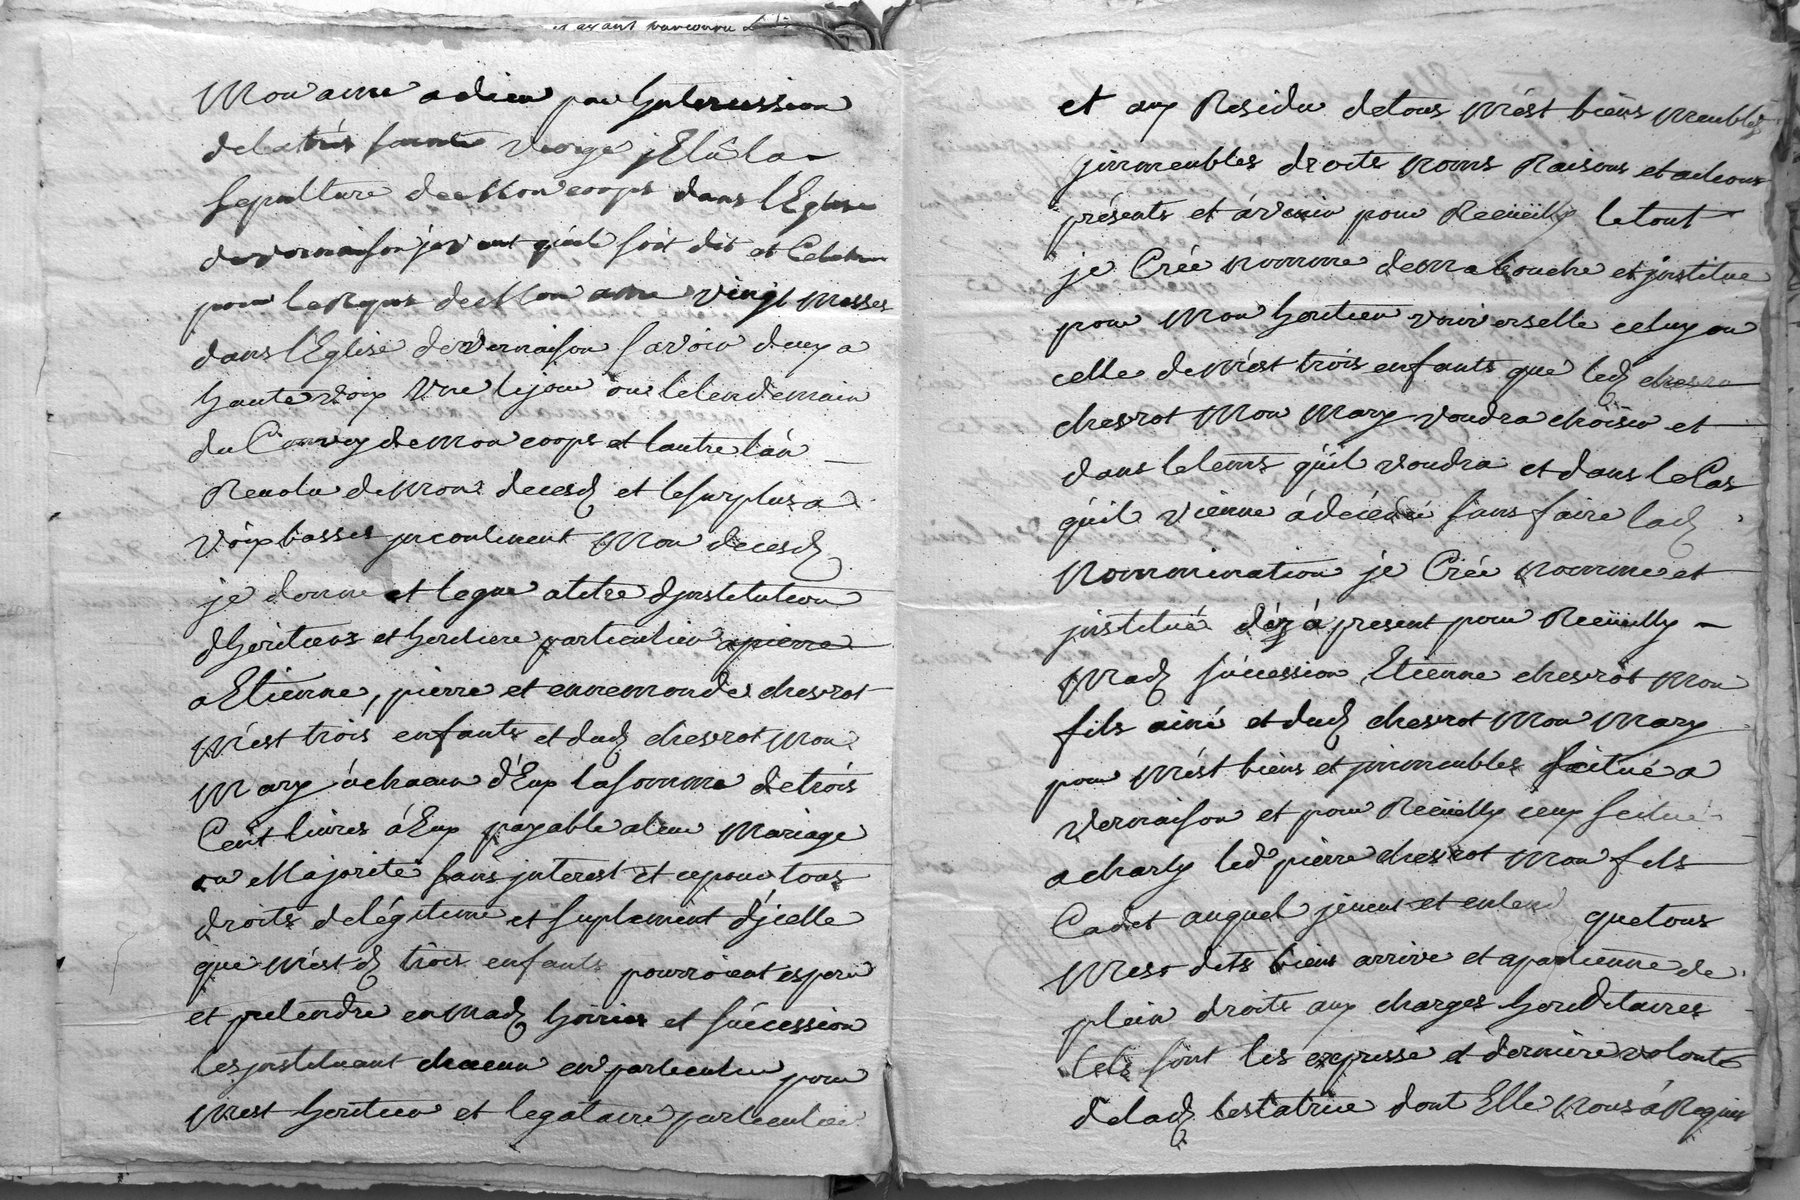 et ayant
Mon ame a dieu par Lyntercession
de la trés sainte vierge j'Elû la
sepulture de Mon corps dans l'Eglise
de vernaison je veut qu'il soit dit et Celebre
pour le Repos de Mon ame vingt Messes
dans l'Eglise de vernaison savoir deux a
haute voix Une le jour ou le lendemain
du Convoy de mon corps et lautre lán
Revolu de Mon decesd et le surplus a
voix basses jncontinent Mon decesd
je donne et legue a titre d'jnstitution
d'heritiers et heritiere particulier a pierre
a Etienne, pierre et ennemonde chevrot
Mést trois enfants et dud chevrot Mon
Mary á chacun d'Eux la somme de trois
Cent livres á Eux payable a leur Mariage
ou Majorité sans jnterest et ce pour tous
droits de légitime et suplement d'jcelle
que Mést d trois enfants pourroient esperer
et pretendre en Mad hoirie et súccession
les jnstituant chacun en particulier pour
Mest heritier et legataire particulier
et au Residu de tous Mést biens Meubles
jmmeubles droits Noms Raisons et actions
présents et ávenir pour Recüeilly le tout
je Crée Nomme de ma bouche et jnstitue
pour Mon heritier vniverselle celuy ou
celle de Mést trois enfants que led
chevrot Mon Mary voudra choisir et
dans le tems qúil voudra et dans le Cas
qúil vienne á décédé sans faire lad
Nommination je Crée Nomme et
jnstitué déz á present pour Recüeilly
Mad súccession Etienne chevrot Mon
fils ainé et dud chevrot Mon Mary
pour Mést biens et jmmeubles scitué a
vernaison et pour Recüeilly ceux scitué
a charly led pierre chevrot Mon fils
Cadet auquel jeveut et entend que tous
Mes dits biens arrive et apartienne de
plein droits aux charges hereditaires
tels sont les expresse et derniere volonté
de lad testatrice dont Elle Nous á Requis